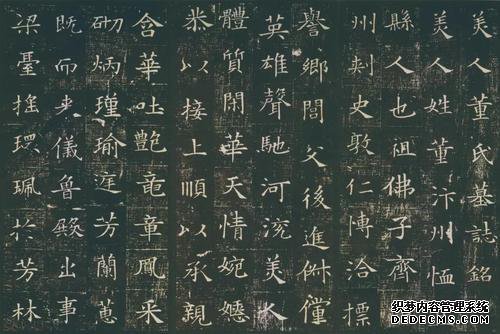 美人董氏墓誌銘
美人姓董汴州恤
縣人也祖佛子齊
州刾史敦仁博洽摽
譽鄉閭父後進俶儻
英雄聲馳河渷美人
體質閑華天情婉嫕
恭以接上順以承親
含華吐艷竜章鳳采
砌炳瑾瑜庭芳蘭蕙
既而来儀魯殿出事
梁臺搖環珮於芳林
织梦内容管理系统
DEDECMS.COM